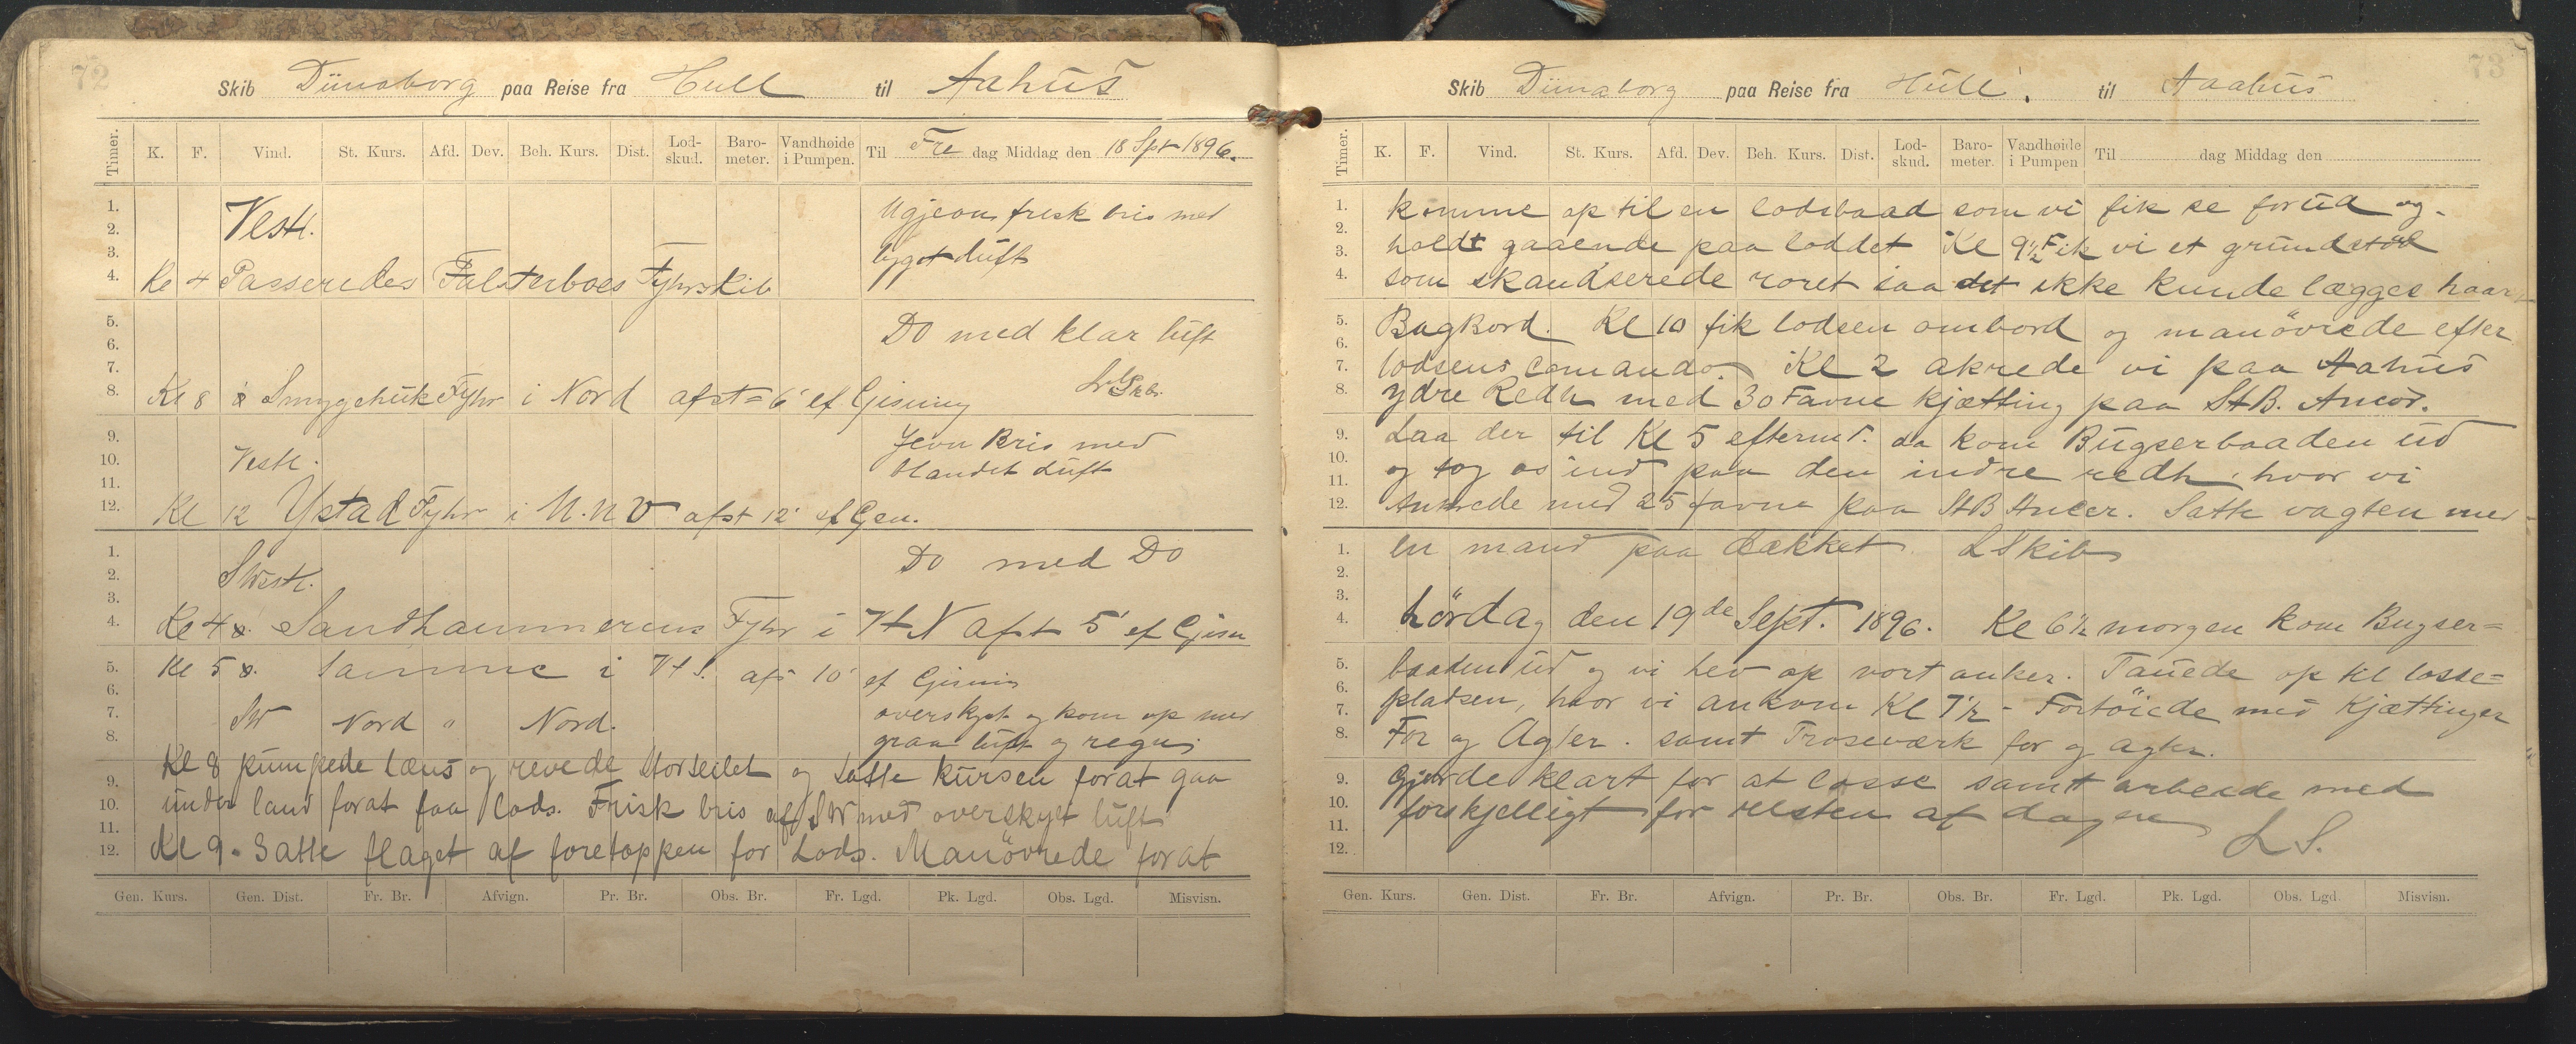 72
Skib Dünaborg paa Reise fra Hull til Aahus
Timer. K. F. Vind. St. Kurs. Afd. Dev. Beh. Kurs. Dist. Lod-skud. Baro-meter. Vandhøide i Pumpen. Til Fre dag Middag den 18 Spt 1896.
1.
2.
3.
4.
Vestl.
frisk bris med
luft
Kl 4 Passeredes Falsterboes Fyhrskib
5.
6.
7.
8.
Do med klar luft
Kl 8 x Smygehuk Fyhr i Nord afst = 6' ef. Gisning
9.
10.
11.
12.
Vestl.
Jevn Bris med
blandet Luft
Kl 12 Ystad Fyhr i N.n.V afst 12' ef Gsn.
1.
2.
3.
4.
SWestl.
Do med Do
Kl 4 x. Sandhammerens Fyhr i Vt N afst 5' ef Gisn
5.
6.
7.
8.
Kl 5 x. Samme i Vt S. afs 10' ef Gisning
SW Nord " Nord.
overskyet og kom op med
graa luft og regn
9.
10.
11.
12.
Kl 8 pumpede læns og revede Storseilet og satte kursen forat gaa
under land forat faa lods. Frisk bris af SW med overskyet luft
Kl 9. Satte flaget af foretoppen for Lods. Manövrede forat
Gen. Kurs. Gen. Dist. Fr. Br. Afvign. Pr. Br. Obs. Br. Fr. Lgd. Pk. Lgd. Obs. Lgd. Misvisn.
73
Skib Dünaborg paa Reise fra Hull. til Aaahus
Timer. K. F. Vind. St. Kurs. Afd. Dev. Beh. Kurs. Dist. Lod-skud. Baro-meter. Vandhøide i Pumpen Til dag Middag den
1.
2.
3.
4.
komme op til en lodsbaad som vi fik se forud og
holdt gaaende paa loddet Kl 9½ Fik vi et grundstød
som skandserede roret saa det ikke kunde lægges haar
5.
6.
7.
8.
Bagbord. Kl 10 fik lodsen ombord og manövrede efter
lodsens Comando. Kl 2 akrede vi paa Aahus
ydre Redh med 30 Favne kjætting paa StB. Ancor.
9.
10.
11.
12.
Laa der til Kl 5 eftermd. da kom Bugserbaaden ud
og tog os ind paa den indre redh, hvor vi
Ankrede med 25 favne paa StB Ancer. Satte vagten med
1.
2.
3.
4.
en mand paa dækket. LSkib
Lördag den 19de Sept. 1896. Kl 6½ morgen kom Bugser=
5.
6.
7.
8.
baaden ud og vi hev op vort anker. Tauede op til losse=
pladsen, hvor vi ankom Kl 7½ - Fortöiede med Kjættinger
For og Agter. samt Trosseværk for og agter.
9.
10.
11.
12.
Gjorde klart for at losse samt arbeide med
forskjelligt for resten af dagen
L S.
Gen. Kurs. Gen. Dist. Fr. Br. Afvign. Pr. Br. Obs. Br. Fr. Lgd. Pk. Lgd. Obs. Lgd. Misvisn.